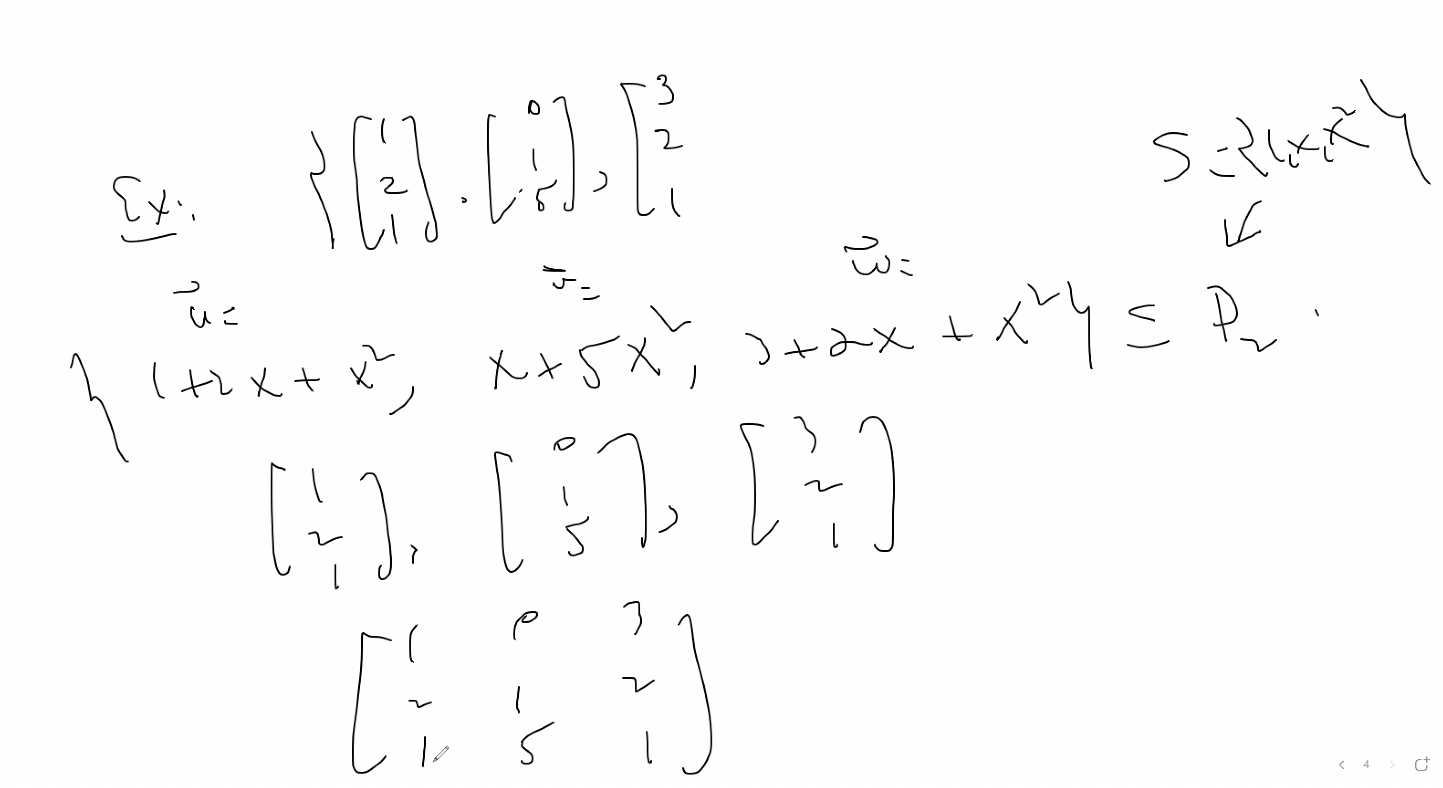 S = {1, x, x²}
Ex:. { [1 2 1] , [0 1 5] , [3 2 1
u⃗ = v⃗ = w⃗ =
{ 1+2x+x², x+5x², 3+2x+x² } ⊆ P₂ .
[1 2 1] , [0 1 5] , [3 2 1]
[1 0 3
2 1 2
1 5 1]
4